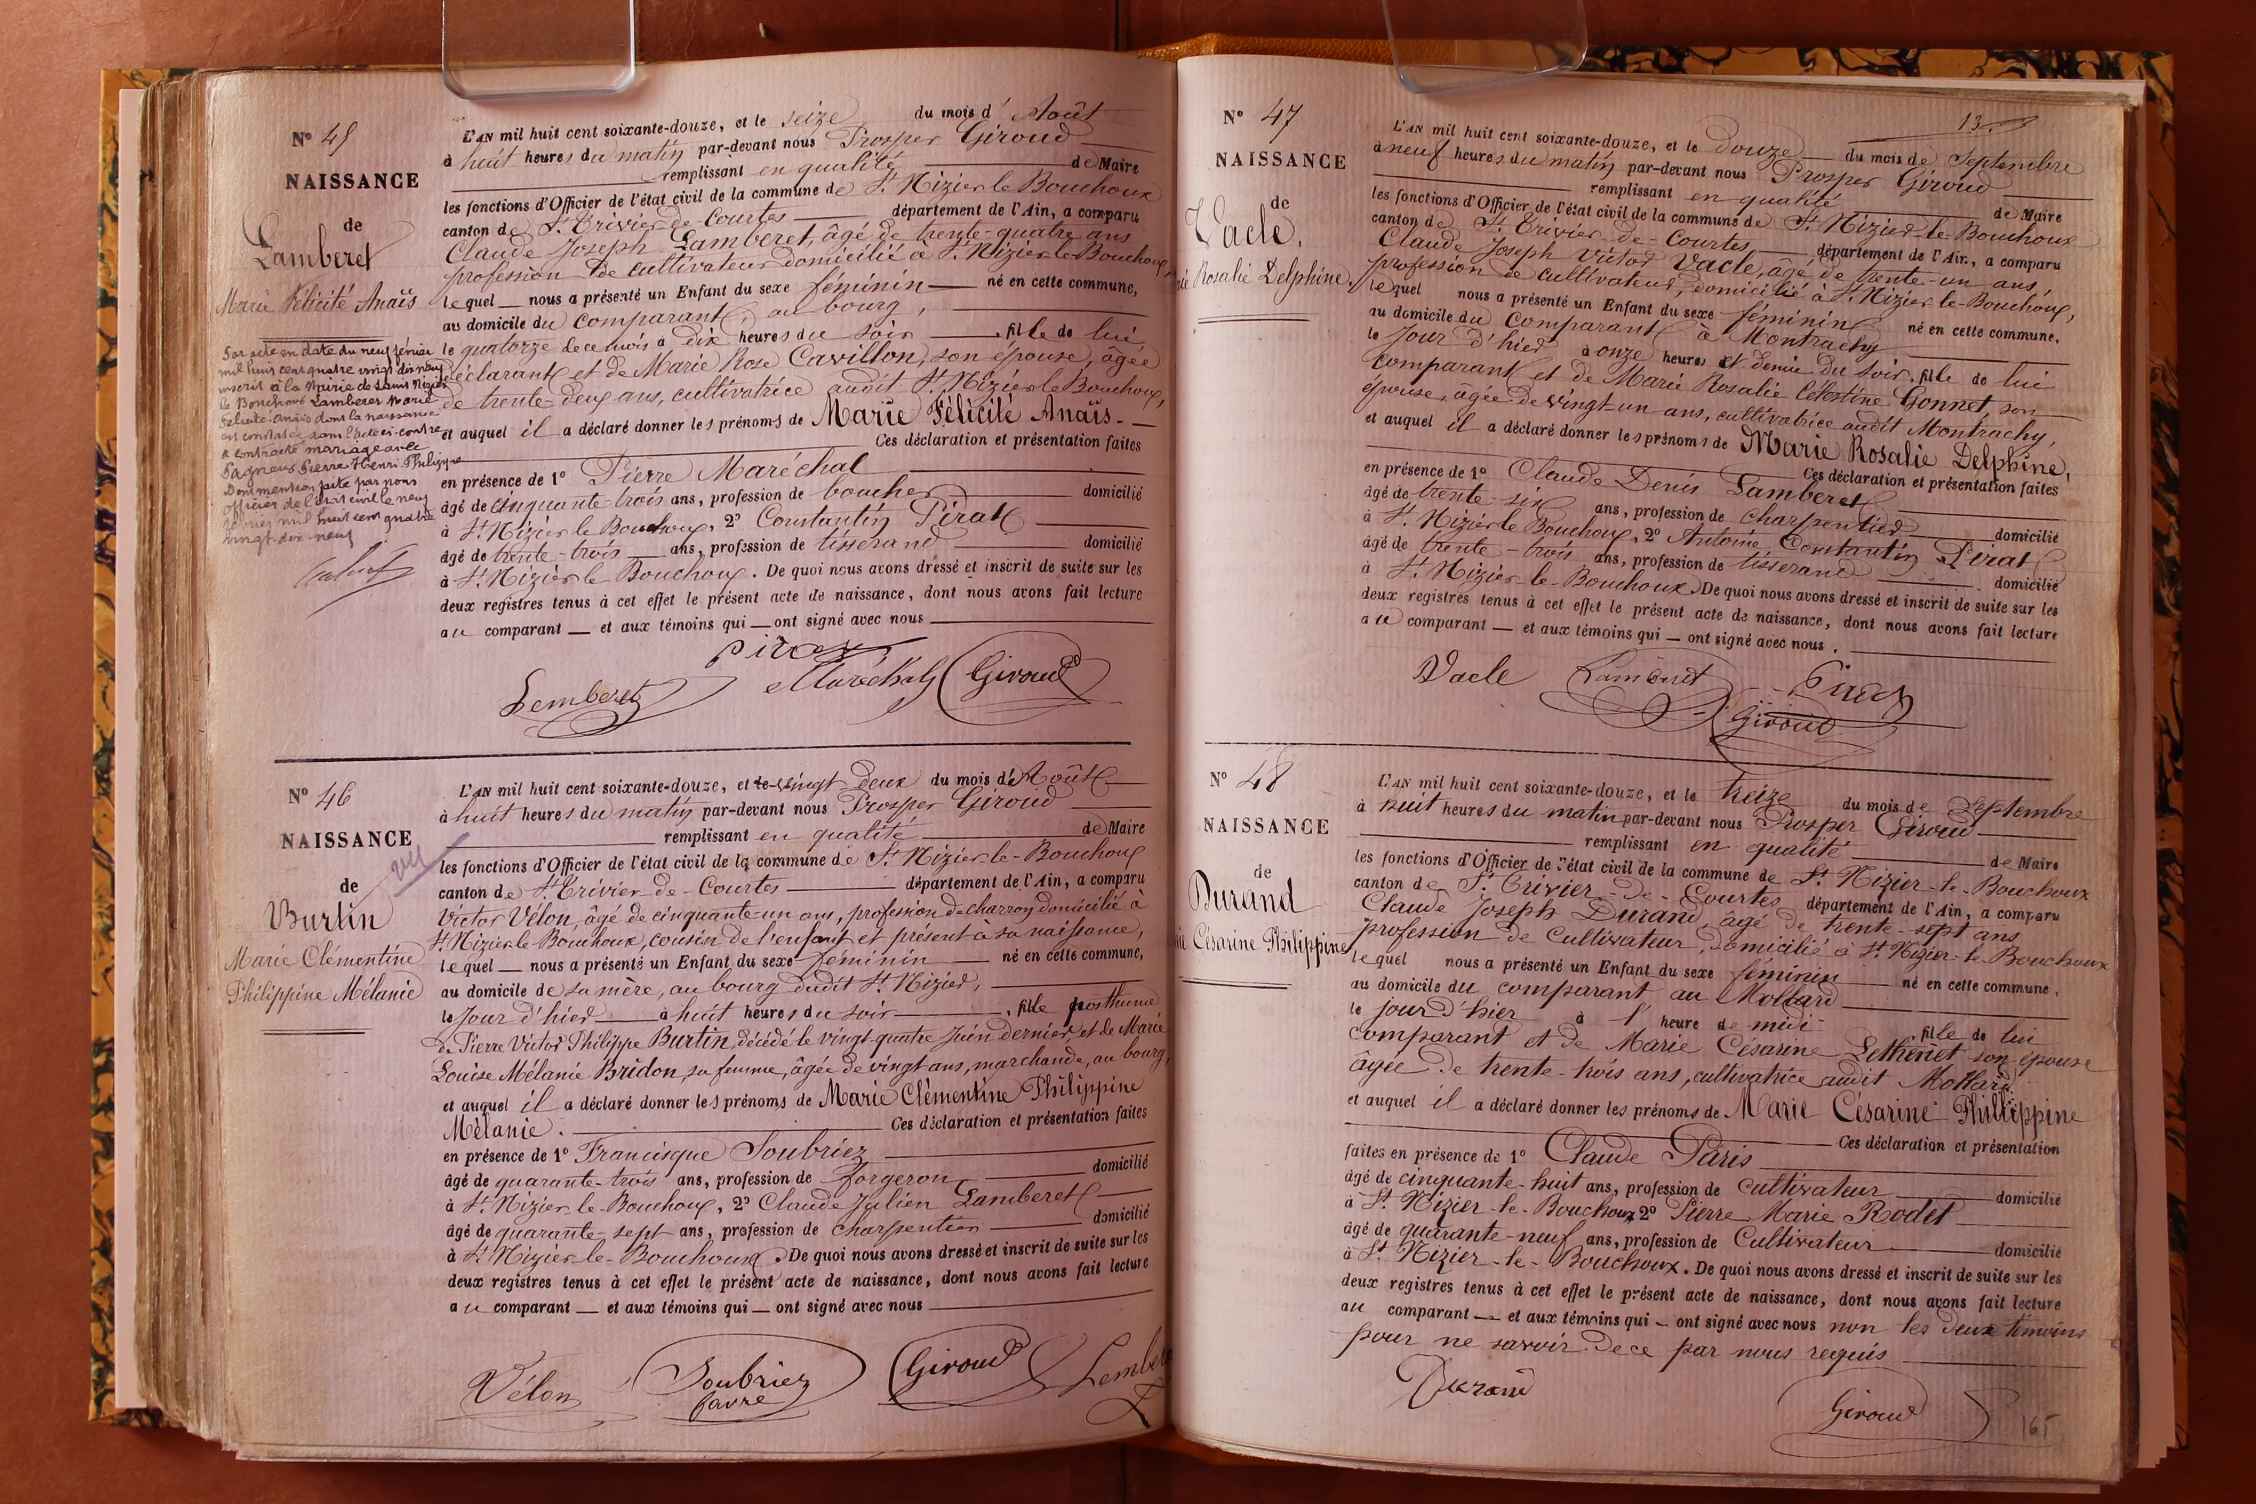 N° 45
NAISSANCE
de
Lamberet
Marie Félicité Anaïs
Par acte en date du neuf février
mil huit cent quatre vingt dix neuf
inscrit à la Mairie de Saint Nizier
le Bouchoux Lamberet Marie
Félicité Anaïs dont la naissance
est constatée dans l'acte ci-contre
a contracté mariage avec
Pagneux Pierre Henri Philippe
Dont mention faite par nous
officier de l'état civil le neuf
février mil huit cent quatre
vingt-dix-neuf
L'AN mil huit cent soixante-douze, et le seize du mois d'Août
à huit heures du matin par-devant nous Prosper Giroud
remplissant en qualité de Maire
les fonctions d'Officier de l'état civil de la commune de St Nizier le Bouchoux
canton de St Trivier de Courtes département de l'Ain, a comparu
Claude Joseph Lamberet, âgé de trente-quatre ans
profession de cultivateur domicilié à St Nizier le Bouchoux
lequel nous a présenté un Enfant du sexe féminin né en cette commune,
au domicile du comparant, au bourg,
le quatorze de ce mois à dix heures du soir, fille de lui,
déclarant et de Marie Rose Cavillon, son épouse, âgée
de trente-deux ans, cultivatrice audit St Nizier le Bouchoux,
et auquel il a déclaré donner les prénoms de Marie Félicité Anaïs.
Ces déclaration et présentation faites
en présence de 1° Pierre Maréchal
âgé de cinquante-trois ans, profession de boucher domicilié
à St Nizier le Bouchoux, 2° Constantin Pirat
âgé de trente-trois ans, profession de tisserand domicilié
à St Nizier le Bouchoux. De quoi nous avons dressé et inscrit de suite sur les
deux registres tenus à cet effet le présent acte de naissance, dont nous avons fait lecture
au comparant et aux témoins qui ont signé avec nous
Pirat
Lemberet Maréchal Giroud
N° 46
NAISSANCE
de
Burtin
Marie Clémentine
Philippine Mélanie
L'AN mil huit cent soixante-douze, et le vingt deux du mois d'Août
à huit heures du matin par-devant nous Prosper Giroud
remplissant en qualité de Maire
les fonctions d'Officier de l'état civil de la commune de St Nizier-le-Bouchoux
canton de St Trivier-de-Courtes département de l'Ain, a comparu
Victor Vélon, âgé de cinquante-un ans, profession de charron domicilié à
St Nizier le Bouchoux, cousin de l'enfant et présent à sa naissance,
lequel nous a présenté un Enfant du sexe féminin né en cette commune,
au domicile de sa mère, au bourg dudit St Nizier,
le jour d'hier à huit heures du soir, fille posthume
de Pierre Victor Philippe Burtin, décédé le vingt-quatre juin dernier, et de Marie
Louise Mélanie Bridon, sa femme, âgée de vingt ans, marchande, au bourg,
et auquel il a déclaré donner les prénoms de Marie Clémentine Philippine
Mélanie. Ces déclaration et présentation faites
en présence de 1° Francisque Soubriez
âgé de quarante-trois ans, profession de forgeron domicilié
à St Nizier-le-Bouchoux, 2° Claude Julien Lamberet
âgé de quarante-sept ans, profession de charpentier domicilié
à St Nizier-le-Bouchoux. De quoi nous avons dressé et inscrit de suite sur les
deux registres tenus à cet effet le présent acte de naissance, dont nous avons fait lecture
au comparant et aux témoins qui ont signé avec nous
Vélon Soubriez Giroud Lembere
favre
13.
N° 47
NAISSANCE
de
Vacle.
Rosalie Delphine.
L'AN mil huit cent soixante-douze, et le douze du mois de Septembre
à neuf heures du matin par-devant nous Prosper Giroud
remplissant en qualité de Maire
les fonctions d'Officier de l'état civil de la commune de St Nizier-le-Bouchoux
canton de St Trivier-de-Courtes département de l'Ain, a comparu
Claude Joseph Victor Vacle, âgé de trente-un ans,
profession de cultivateur, domicilié à St Nizier-le-Bouchoux,
lequel nous a présenté un Enfant du sexe féminin né en cette commune.
au domicile du comparant à Montrachy
le jour d'hier à onze heures et demie du soir, fille de lui
comparant et de Marie Rosalie Célestine Gonnet, son
épouse, âgée de vingt-un ans, cultivatrice audit Montrachy,
et auquel il a déclaré donner les prénoms de Marie Rosalie Delphine,
Ces déclaration et présentation faites
en présence de 1° Claude Denis Lamberet
âgé de trente-six ans, profession de charpentier domicilié
à St Nizier le Bouchoux, 2° Antoine Constantin Pirat
âgé de trente-trois ans, profession de tisserand domicilié
à St Nizier-le-Bouchoux. De quoi nous avons dressé et inscrit de suite sur les
deux registres tenus à cet effet le présent acte de naissance, dont nous avons fait lecture
au comparant et aux témoins qui ont signé avec nous.
Vacle Lamberet Pirat
Giroud
N° 48
NAISSANCE
de
Durand
Césarine Philippine
L'AN mil huit cent soixante-douze, et le treize du mois de Septembre
à huit heures du matin par-devant nous Prosper Giroud
remplissant en qualité de Maire
les fonctions d'Officier de l'état civil de la commune de St Nizier-le-Bouchoux
canton de St Trivier-de-Courtes département de l'Ain, a comparu
Claude Joseph Durand, âgé de trente-sept ans
profession de cultivateur, domicilié à St Nizier-le-Bouchoux
lequel nous a présenté un Enfant du sexe féminin né en cette commune.
au domicile du comparant au Mollard
le jour d'hier à l'heure de midi fille de lui
comparant et de Marie Césarine Lethenet son épouse
âgée de trente-trois ans, cultivatrice audit Mollard.
et auquel il a déclaré donner les prénoms de Marie Césarine Philippine
Ces déclaration et présentation
faites en présence de 1° Claude Paris
âgé de cinquante-huit ans, profession de cultivateur domicilié
à St Nizier-le-Bouchoux, 2° Pierre Marie Rodet
âgé de quarante-neuf ans, profession de Cultivateur domicilié
à St Nizier-le-Bouchoux. De quoi nous avons dressé et inscrit de suite sur les
deux registres tenus à cet effet le présent acte de naissance, dont nous avons fait lecture
au comparant et aux témoins qui ont signé avec nous non les deux témoins
pour ne savoir de ce par nous requis
Durand
Giroud
165